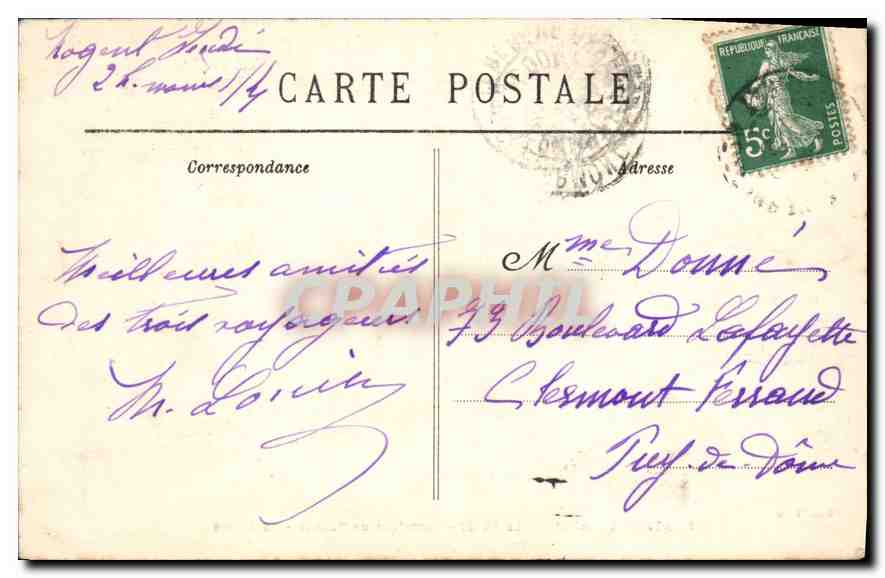 Nogent Jeudi
2 h. moins 1/4
CARTE POSTALE
REPUBLIQUE FRANÇAISE
5c
POSTES
Correspondance
Adresse
Meilleures amitiés
des trois voyageurs
M.
Mme Donné
73 Boulevard Lafayette
Clermont Ferrand
Puy-de-Dôme
CPAPHIL